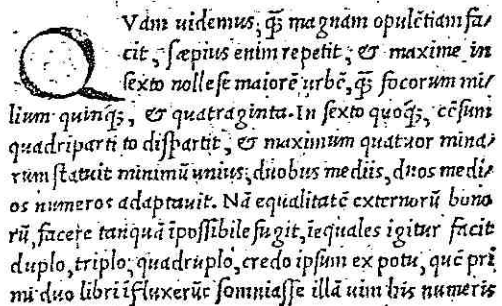 QVam uidemus, q̃; magnam opulẽtiam fa/
cit, sæpius enim repetit, & maxime in
sexto nolle se maiorẽ urbẽ, q̃; focorum mi/
lium quinq;, & quatraginta. In sexto quoq̃;, cẽsum
quadriparti to dispartit, & maximum quatuor mina/
rum statuit minimũ unius, duobus mediis, duos medi/
os numeros adaptauit. Nã equalitatẽ externorũ bono
rũ, facere tanquã ĩpossibile fugit, ĩequales igitur facit
duplo, triplo, quadruplo, credo ipsum ex potu, quẽ pri
mi duo libri ĩfluxerũt somniasse illã uim his numeris